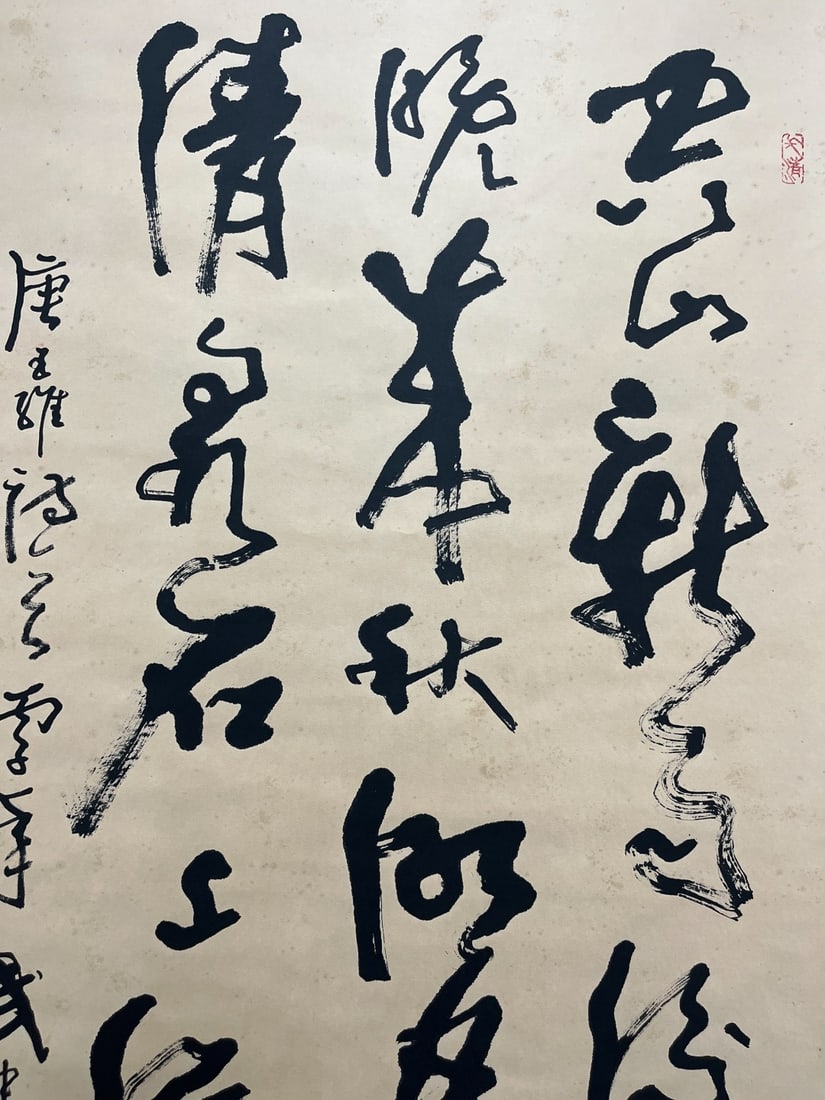 空山新雨後
晚來秋明月
清泉石上流
唐王維詩一首